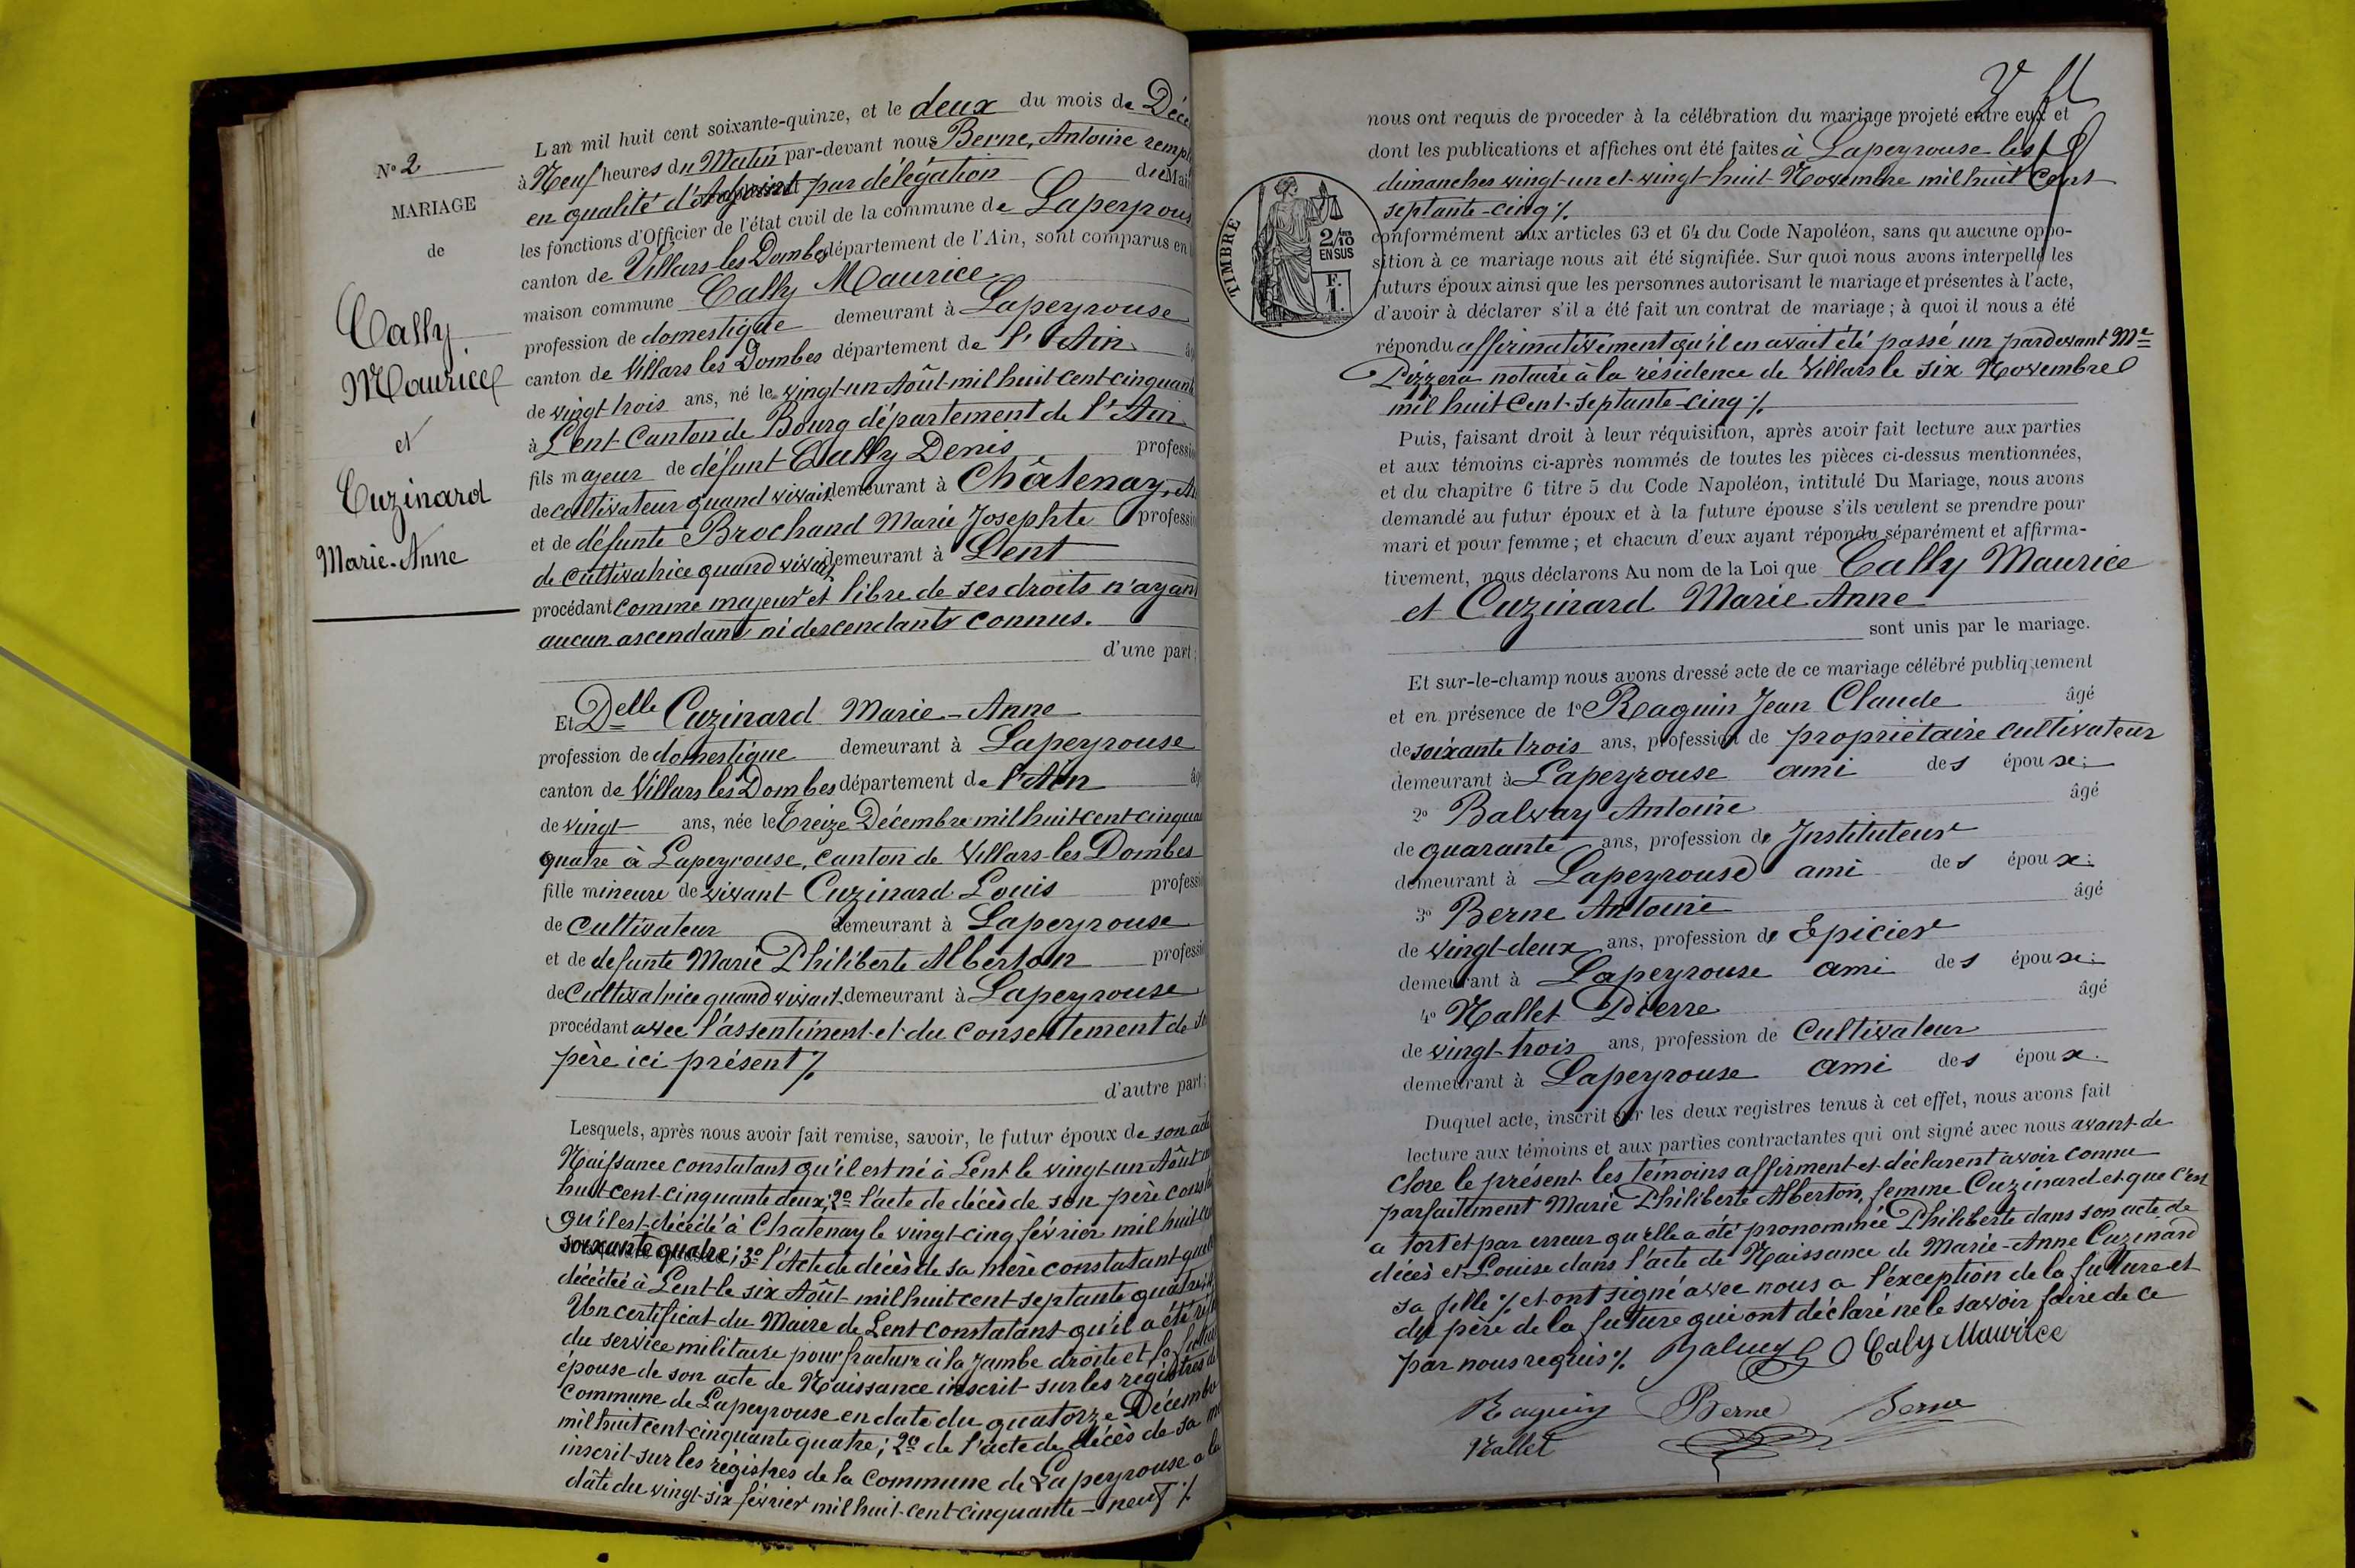 N° 2
MARIAGE
de
Cally
Maurice
et
Cuzinard
Marie-Anne
L'an mil huit cent soixante-quinze, et le deux du mois de Déce
à Neuf heures du Matin par-devant nous Berne, Antoine rempl
en qualité d'Adjoint par délégation du Mai
les fonctions d'Officier de l'état civil de la commune de Lapeyrous
canton de Villars les Dombes département de l'Ain, sont comparus en
maison commune Cally Maurice
profession de domestique demeurant à Lapeyrouse
canton de Villars les Dombes département de l'Ain âg
de vingt trois ans, né le vingt-un Août mil huit-cent-cinquant
à Lent Canton de Bourg département de l'Ain
fils majeur de défunt Cally Denis professi
de cultivateur quand vivait demeurant à Châtenay, A
et de défunte Brochand Marie Josephte professi
de cultivatrice quand vivait demeurant à Lent
procédant comme majeur et libre de ses droits n'ayan
aucun ascendant ni descendants connus.
d'une part;
Et Delle Cuzinard Marie-Anne
profession de domestique demeurant à Lapeyrouse
canton de Villars les Dombes département de l'Ain âg
de vingt ans, née le treize Décembre mil huit-cent-cinqua
quatre à Lapeyrouse, canton de Villars-les Dombes
fille mineure de vivant Cuzinard Louis professi
de cultivateur demeurant à Lapeyrouse
et de defunte Marie Philiberte Alberton professi
de Cultivatrice quand vivait demeurant à Lapeyrouse
procédant avec l'assentiment et du consentement de s
père ici présent %
d'autre part;
Lesquels, après nous avoir fait remise, savoir, le futur époux de son act
Naissance constatant qu'il est né à Lent le vingt-un Août m
huit-cent-cinquante deux; 2° l'acte de décès de son père const
qu'il est décédé à Chatenay le vingt-cinq février mil huit-c
soixante quatre; 3° l'Acte de décès de sa mère constatant qu
décédée à Lent-le six Août mil huit cent septante quatre;
Un certificat du Maire de Lent constatant qu'il a été réf
du service militaire pour fracture à la jambe droite et la futur
épouse de son acte de Naissance inscrit sur les registres de
commune de Lapeyrouse en date du quatorze Décembr
mil huit cent-cinquante quatre; 2° de l'acte de décès de sa m
inscrit sur les registres de la commune de Lapeyrouse à la
date du vingt-six février mil huit-cent-cinquante-neuf %
nous ont requis de proceder à la célébration du mariage projeté entre eux et
dont les publications et affiches ont été faites à Lapeyrouse les
dimanches vingt-un et vingt-huit Novembre mil huit Cent
septante-cinq %
conformément aux articles 63 et 64 du Code Napoléon, sans qu'aucune oppo-
sition à ce mariage nous ait été signifiée. Sur quoi nous avons interpellé les
futurs époux ainsi que les personnes autorisant le mariage et présentes à l'acte,
d'avoir à déclarer s'il a été fait un contrat de mariage; à quoi il nous a été
répondu affirmativement qu'il en avait été passé un pardevant Me
Pizzera notaire à la résidence de Villars le six Novembre
mil huit Cent-septante-cinq %
TIMBRE
2/10
EN SUS
F.
1.
Puis, faisant droit à leur réquisition, après avoir fait lecture aux parties
et aux témoins ci-après nommés de toutes les pièces ci-dessus mentionnées,
et du chapitre 6 titre 5 du Code Napoléon, intitulé Du Mariage, nous avons
demandé au futur époux et à la future épouse s'ils veulent se prendre pour
mari et pour femme; et chacun d'eux ayant répondu séparément et affirma-
tivement, nous déclarons Au nom de la Loi que Cally Maurice
et Cuzinard Marie Anne
sont unis par le mariage.
Et sur-le-champ nous avons dressé acte de ce mariage célébré publiquement
et en présence de 1° Raguin Jean Claude âgé
de soixante trois ans, profession de propriétaire cultivateur
demeurant à Lapeyrouse ami des époux:
2° Balvay Antoine âgé
de quarante ans, profession de Instituteur
demeurant à Lapeyrouse ami des époux:
3° Berne Antoine âgé
de vingt-deux ans, profession de Epicier
demeurant à Lapeyrouse ami des époux:
4° Nallet Pierre âgé
de vingt-trois ans, profession de Cultivateur
demeurant à Lapeyrouse ami des époux.
Duquel acte, inscrit sur les deux registres tenus à cet effet, nous avons fait
lecture aux témoins et aux parties contractantes qui ont signé avec nous avant de
clore le présent les témoins affirment et déclarent avoir connu
parfaitement Marie Philiberte Alberton, femme Cuzinard et que c'est
a tort et par erreur qu'elle a été pronommée Philiberte dans son acte de
décès et Louise dans l'acte de Naissance de Marie-Anne Cuzinard
sa fille % et ont signé avec nous a l'exception de la future et
du père de la future qui ont déclaré ne le savoir faire de ce
par nous requis % Balvay Caly Maurice
Raguin Berne Berne
Nallet